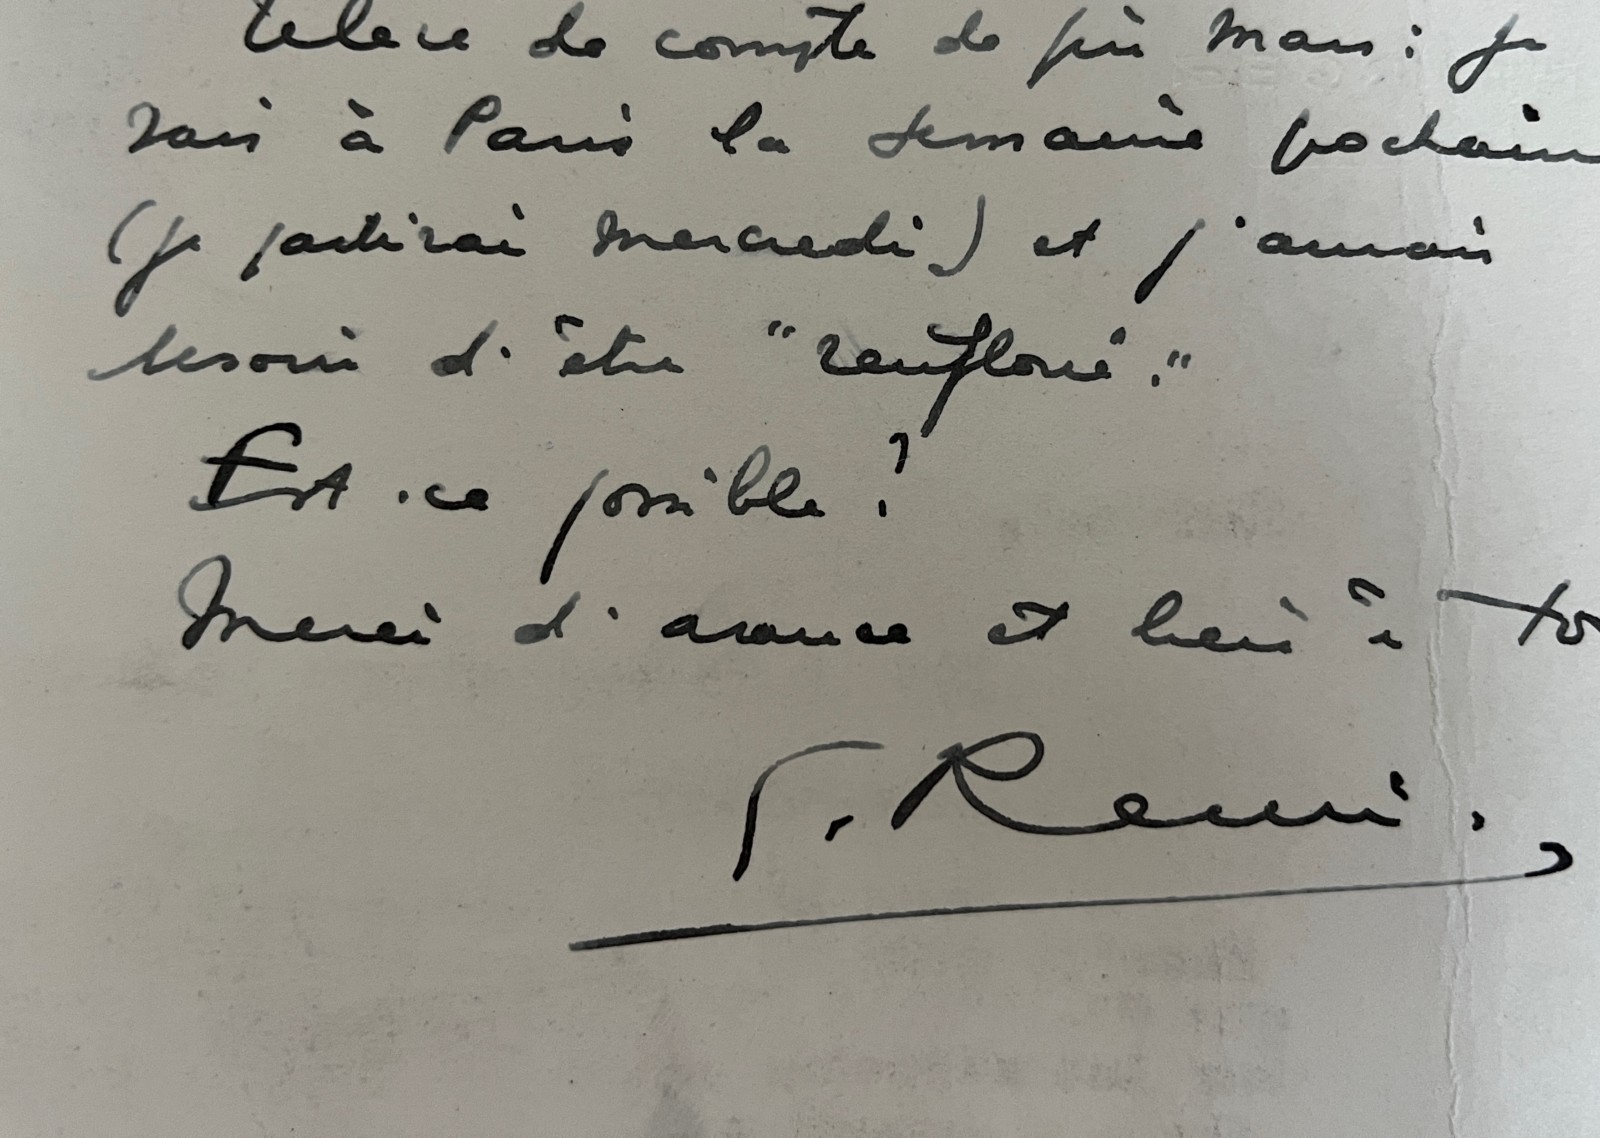 relevé de compte de fin Mars : je
vais à Paris la semaine prochain
(je partirai mercredi) et j'aurais
besoin d'être "renfloué".
Est-ce possible ?
Merci d'avance et bien à to
G. Remi.